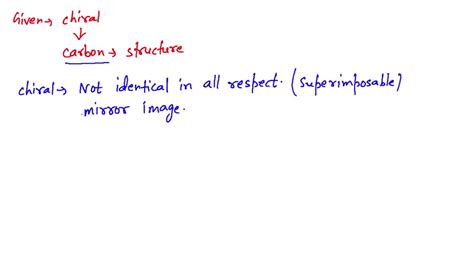 Given → chiral
↓
carbon → structure
chiral → Not identical in all respect. (Superimposable)
mirror image.